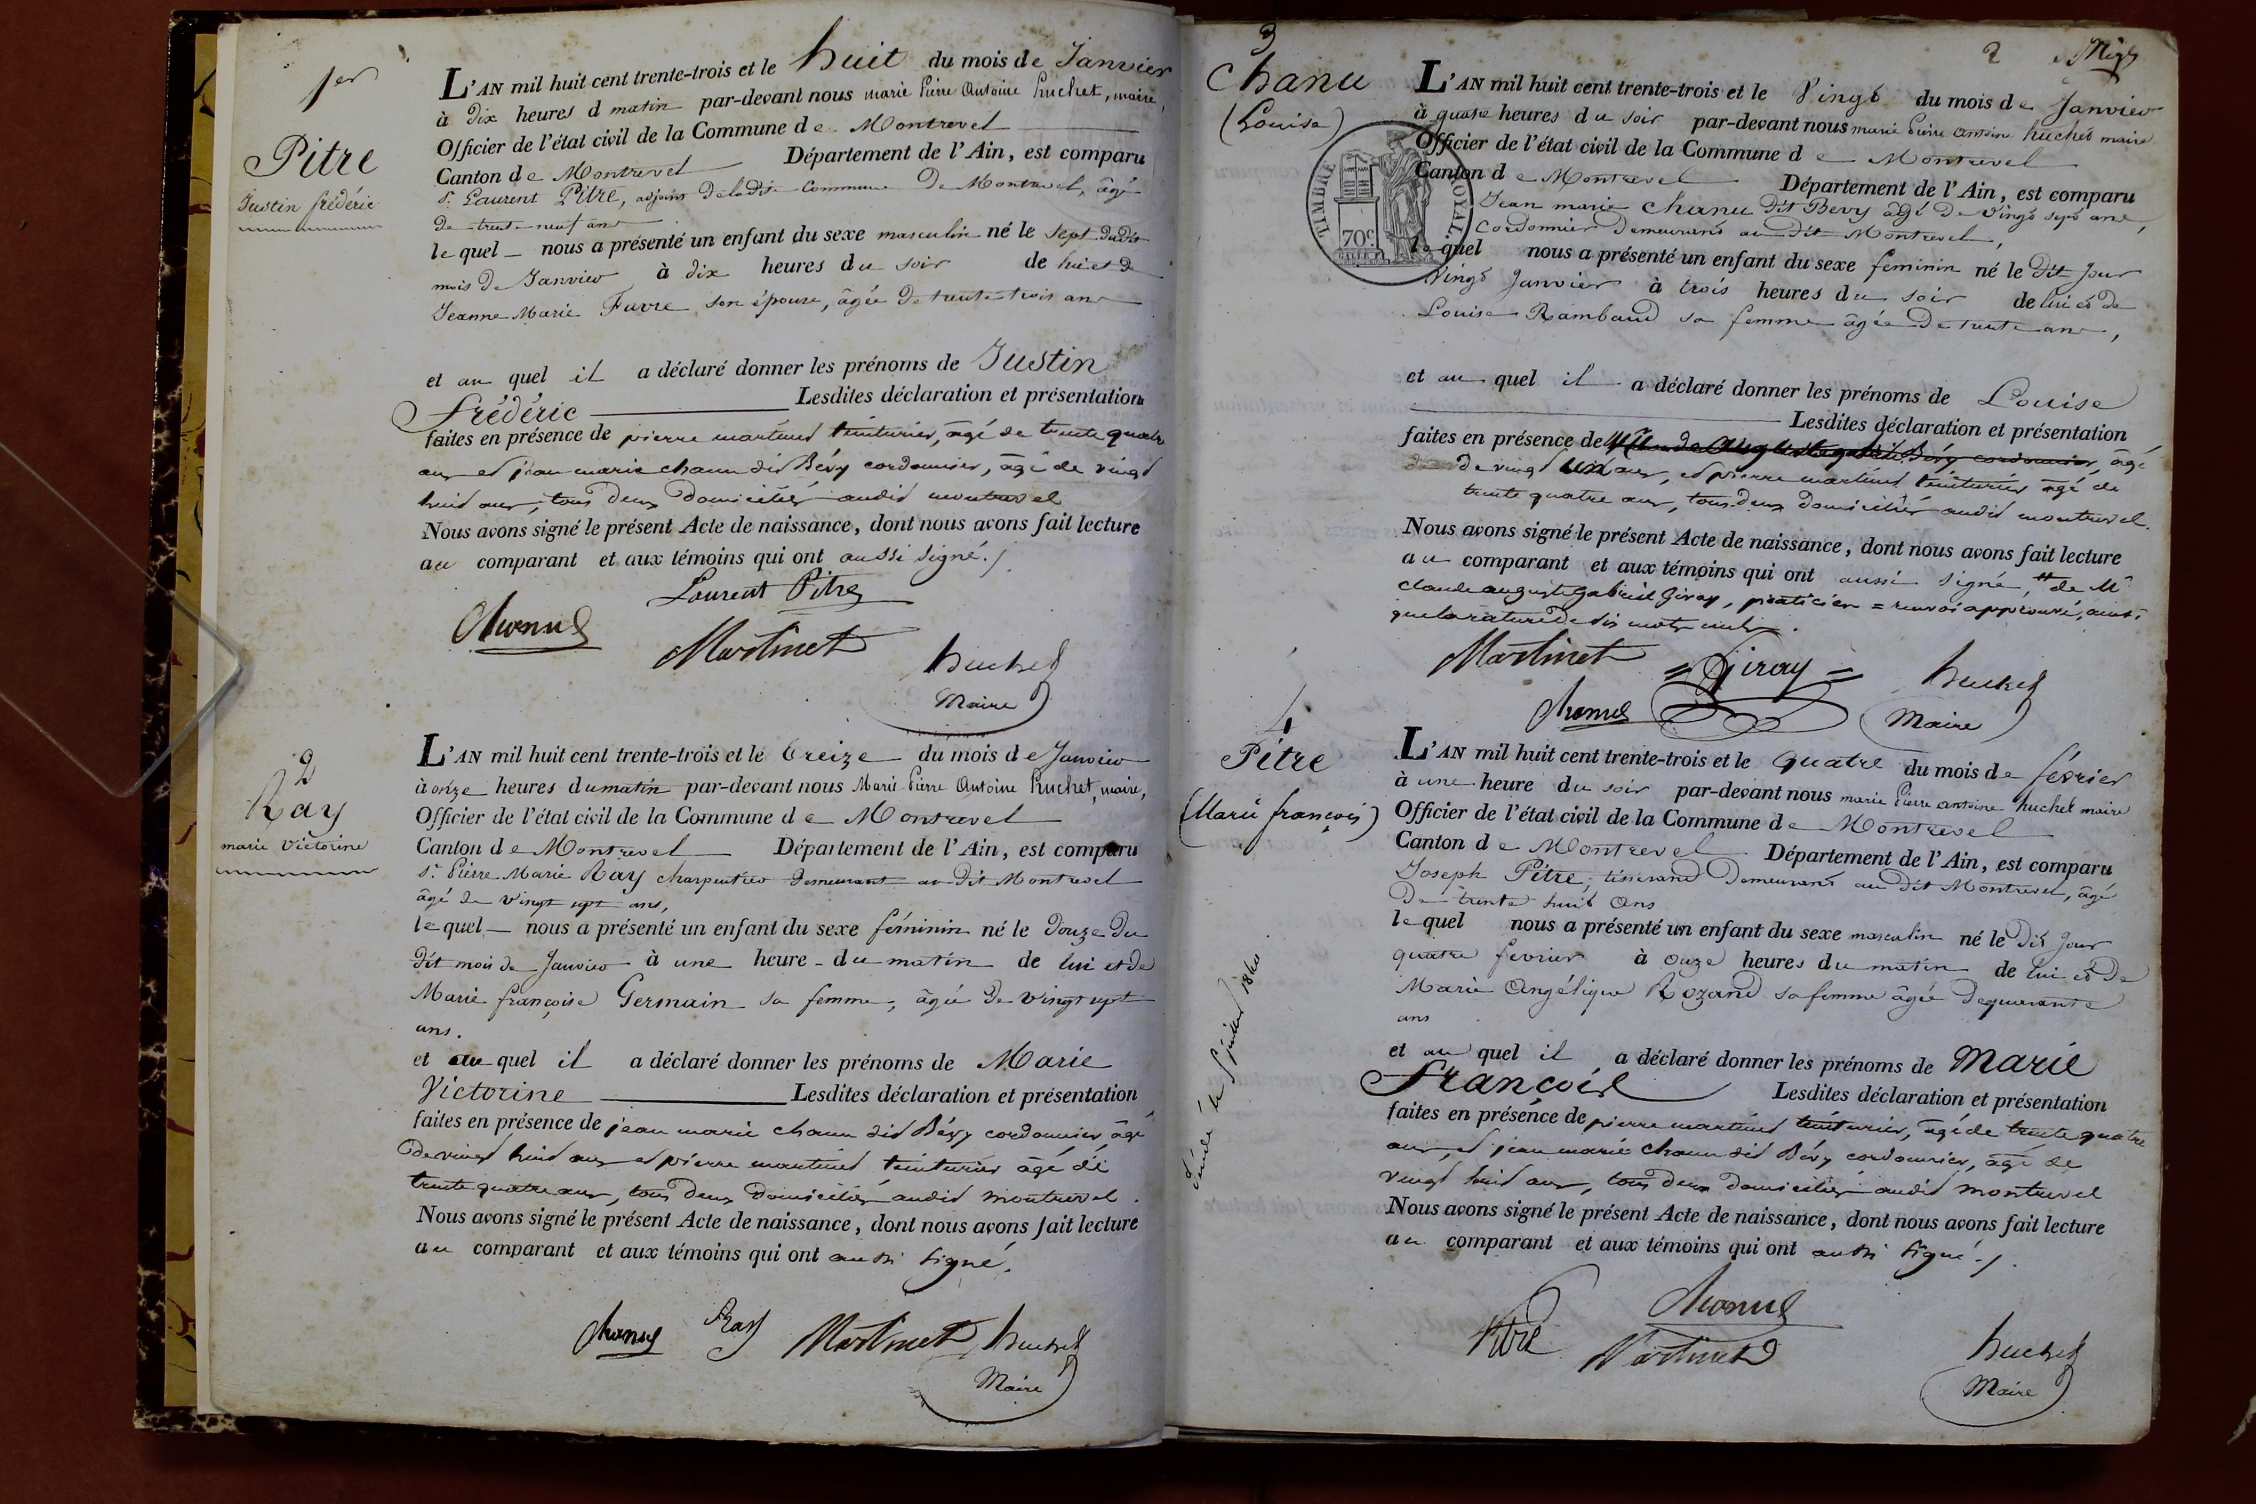 1er
Pitre
Justin frédéric
L'AN mil huit cent trente-trois et le huit du mois de Janvier
à dix heures d matin par-devant nous marie Pierre Antoine huchet, maire,
Officier de l'état civil de la Commune de Montrevel
Canton de Montrevel Département de l'Ain, est comparu
Sr. Laurent Pitre, adjoint de ladite commune de Montrevel, âgé
de trente neuf ans
lequel nous a présenté un enfant du sexe masculin né le sept dudit
mois de Janvier à dix heures du soir de lui et de
Jeanne Marie Favre son épouse, âgée de trente trois ans
et au quel il a déclaré donner les prénoms de Justin
Frédéric Lesdites déclaration et présentation
faites en présence de pierre martinet teinturier, âgé de trente quatre
ans et jean marie chanu dit Bévy cordonnier, âgé de vingt
huit ans, tous deux domiciliés audit montrevel
Nous avons signé le présent Acte de naissance, dont nous avons fait lecture
au comparant et aux témoins qui ont aussi signé./
Laurent Pitre
Chanu
Martinet
huchet
Maire
2
Ray
marie Victorine
L'AN mil huit cent trente-trois et le treize du mois de Janvier
à onze heures du matin par-devant nous Marie Pierre Antoine huchet, maire,
Officier de l'état civil de la Commune de Montrevel
Canton de Montrevel Département de l'Ain, est comparu
Sr. Pierre Marie Ray charpentier demeurant au dit Montrevel
âgé de vingt sept ans,
lequel nous a présenté un enfant du sexe féminin né le douze du
dit mois de Janvier à une heure du matin de lui et de
Marie françoise Germain sa femme, âgée de vingt sept
ans.
et au quel il a déclaré donner les prénoms de Marie
Victorine Lesdites déclaration et présentation
faites en présence de jean marie chanu dit Bévy cordonnier, âgé
de vingt huit ans et pierre martinet teinturier âgé de
trente quatre ans, tous deux domiciliés audit montrevel.
Nous avons signé le présent Acte de naissance, dont nous avons fait lecture
au comparant et aux témoins qui ont aussi signé.
Chanu Ray Martinet huchet
Maire
2
3
Chanu
(Louise)
TIMBRE ROYAL
70c.
L'AN mil huit cent trente-trois et le Vingt du mois de Janvier
à quatre heures du soir par-devant nous marie Pierre antoine huchet maire
Officier de l'état civil de la Commune de Montrevel
Canton de Montrevel Département de l'Ain, est comparu
Jean marie Chanu dit Bevy âgé de vingt sept ans,
Cordonnier demeurant au dit Montrevel,
lequel nous a présenté un enfant du sexe feminin né le dit jour
Vingt Janvier à trois heures du soir de lui et de
Louise Rambaud sa femme âgée de trente ans,
et au quel il a déclaré donner les prénoms de Louise
Lesdites déclaration et présentation
faites en présence de Bévy cordonnier, âgé
de vingt un ans, et pierre martinet teinturier âgé de
trente quatre ans, tous deux domiciliés audit montrevel.
Nous avons signé le présent Acte de naissance, dont nous avons fait lecture
au comparant et aux témoins qui ont aussi signé, # de Mr
claude auguste gabriel Giray, praticien = renvoi approuvé, ainsi
que la rature de six mots nuls.
Martinet = Giray = huchet
Chanu Maire
4
Pitre
(Marie françois)
Décédé le 1840
L'AN mil huit cent trente-trois et le quatre du mois de février
à une heure du soir par-devant nous marie Pierre antoine huchet maire
Officier de l'état civil de la Commune de Montrevel
Canton de Montrevel Département de l'Ain, est comparu
Joseph Pitre, tisserand demeurant au dit Montrevel, âgé
de trente huit ans
lequel nous a présenté un enfant du sexe masculin né le dit jour
quatre fevrier à onze heures du matin de lui et de
Marie Angélique Rozand sa femme âgée de quarante
ans
et au quel il a déclaré donner les prénoms de Marie
François Lesdites déclaration et présentation
faites en présence de pierre martinet teinturier, âgé de trente quatre
ans, et jean marie chanu dit Bévy cordonnier, âgé de
vingt huit ans, tous deux domiciliés audit montrevel
Nous avons signé le présent Acte de naissance, dont nous avons fait lecture
au comparant et aux témoins qui ont aussi signé./.
Chanu
Pitre Martinet huchet
Maire